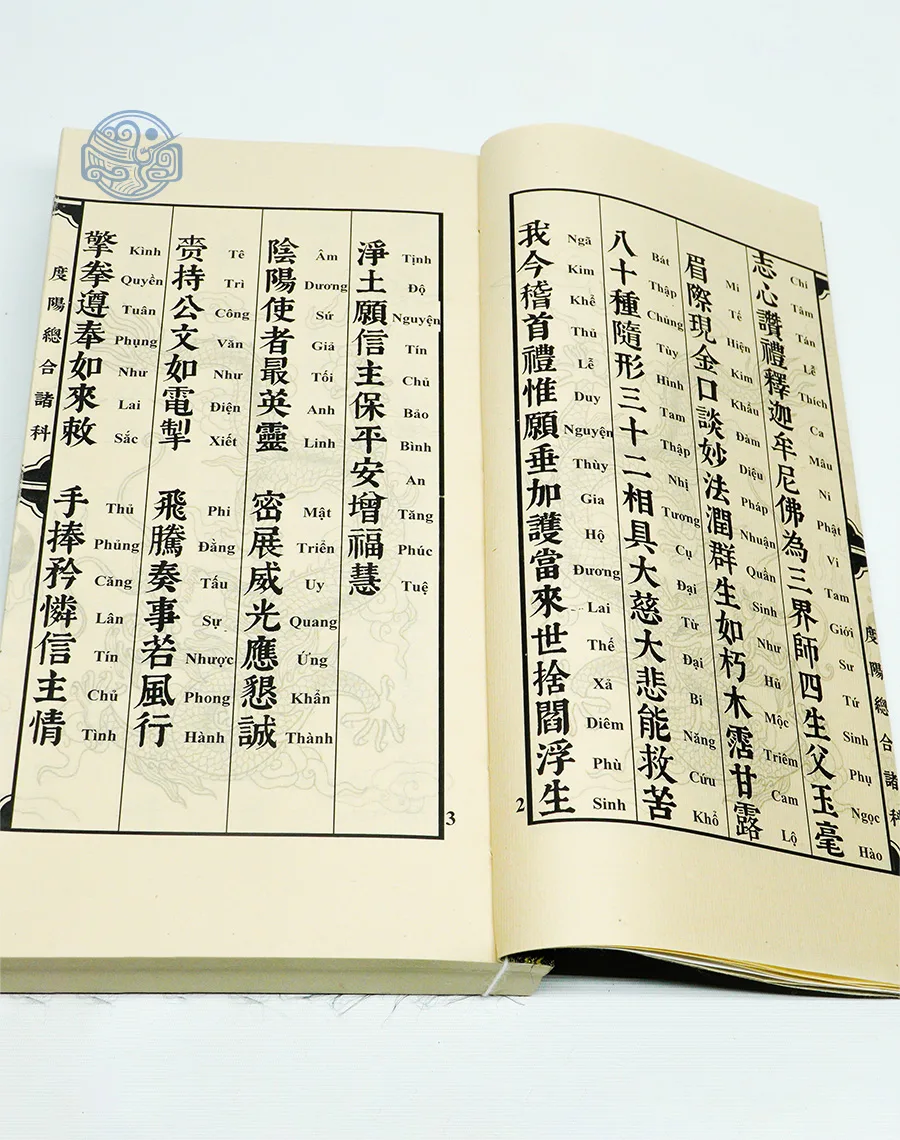 志心讚禮釋迦牟尼佛為三界師四生父玉毫
Chí Tâm Tán Lễ Thích Ca Mâu Ni Phật Vi Tam Giới Sư Tứ Sinh Phụ Ngọc Hào
眉際現金口談妙法潤群生如朽木霑甘露
Mi Tế Hiện Kim Khẩu Đàm Diệu Pháp Nhuận Quần Sinh Như Hủ Mộc Triêm Cam Lộ
八十種隨形三十二相具大慈大悲能救苦
Bát Thập Chủng Tùy Hình Tam Thập Nhị Tương Cụ Đại Từ Đại Bi Năng Cứu Khổ
我今稽首禮惟願垂加護當來世捨閻浮生
Ngã Kim Khể Thủ Lễ Duy Nguyện Thùy Gia Hộ Đương Lai Thế Xả Diêm Phù Sinh
度陽總合諸科
2
淨土願信主保平安增福慧
Tịnh Độ Nguyện Tín Chủ Bảo Bình An Tăng Phúc Tuệ
陰陽使者最英靈 密展威光應懇誠
Âm Dương Sứ Giả Tối Anh Linh Mật Triển Uy Quang Ứng Khẩn Thành
赍持公文如電掣 飛騰奏事若風行
Tê Trì Công Văn Như Điện Xiết Phi Đằng Tấu Sự Nhược Phong Hành
擎拳遵奉如來敕 手捧矜憐信主情
Kình Quyền Tuân Phụng Như Lai Sắc Thủ Phủng Căng Lân Tín Chủ Tình
度陽總合諸科
3